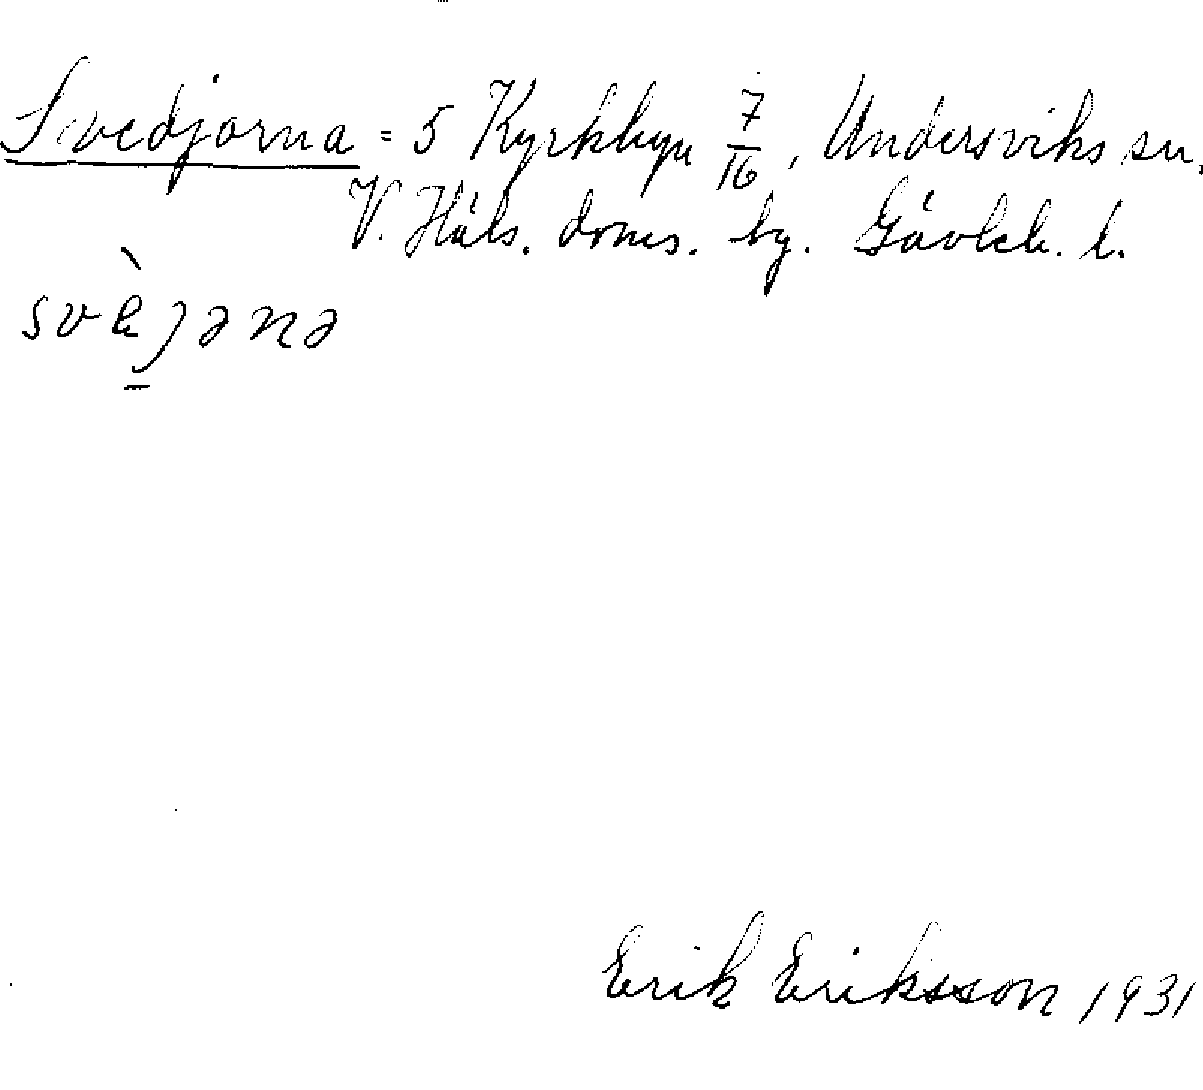 Svedjorna = 5 Kyrkbyn 7/16, Undersviks sn,
V. Häls. doms. hg. Gävleb. l.
svèjənə
Erik Eriksson 1931